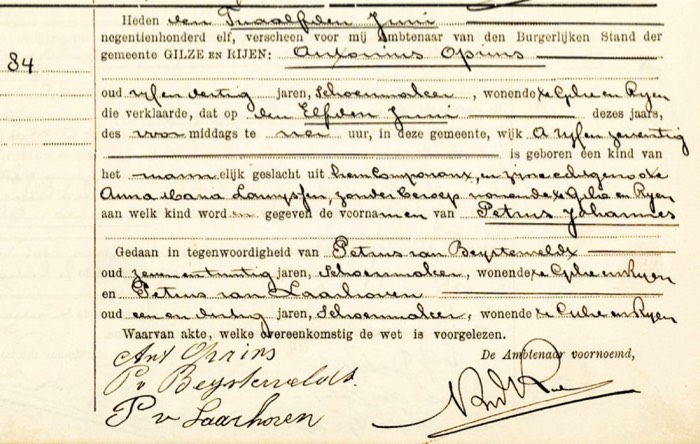 Heden den Twaalfden Juni
negentienhonderd elf, verscheen voor mij Ambtenaar van den Burgerlijken Stand der
84
gemeente GILZE EN RIJEN: Antonius Oprins
oud vijfendertig jaren, Schoenmaker, wonende te Gilze en Rijen
die verklaarde, dat op den Elfden Juni dezes jaars,
des voormiddags te vier uur, in deze gemeente, wijk A vijfenzeventig
is geboren een kind van
het mannelijk geslacht uit hem Comparant, en zijne echtgenoote
Anna Maria zonder beroep wonende te Gilze en Rijen
aan welk kind word gegeven de voornamen van Petrus Johannes
Gedaan in tegenwoordigheid van Petrus van Beijsterveldt
oud zevenentwintig jaren, Schoenmaker, wonende te Gilze en Rijen
en Petrus van Laarhoven
oud eenendertig jaren, Schoenmaker, wonende te Gilze en Rijen
Waarvan akte, welke overeenkomstig de wet is voorgelezen.
Ant Oprins
De Ambtenaar voornoemd,
P v Beijsterveldt.
P v Laarhoven